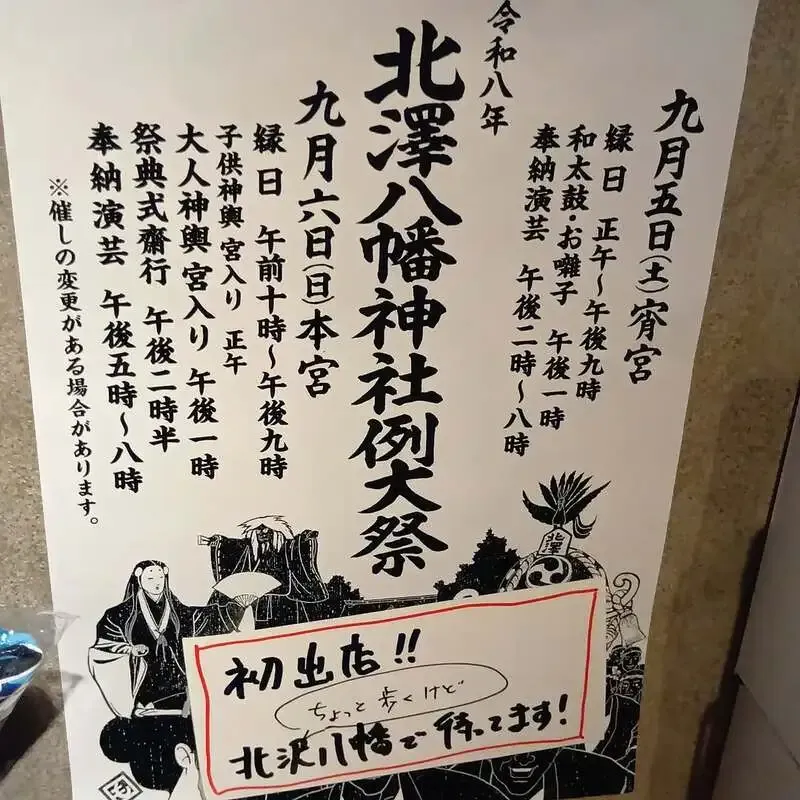 令和八年
北澤八幡神社例大祭
九月五日(土)宵宮
縁日 正午～午後九時
和太鼓・お囃子 午後一時
奉納演芸 午後二時～八時
九月六日(日)本宮
縁日 午前十時～午後九時
子供神輿 宮入り 正午
大人神輿 宮入り 午後一時
祭典式齋行 午後二時半
奉納演芸 午後五時～八時
※催しの変更がある場合があります。
北澤
初出店!!
ちょっと歩くけど
北沢八幡で待ってます!